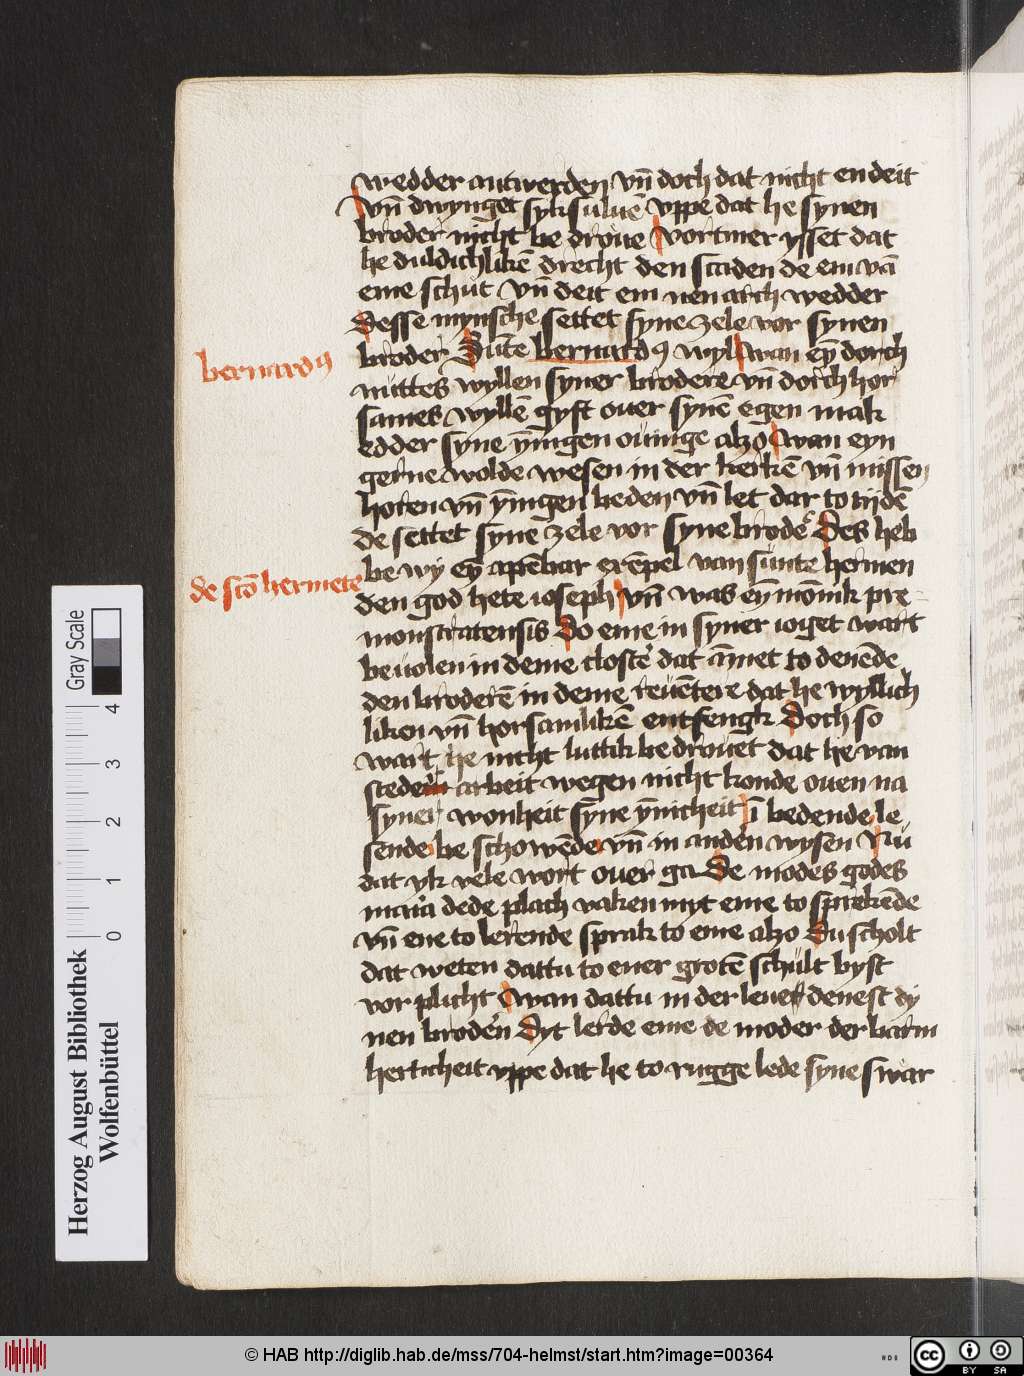 wedder antwerden vn̄ doch dat nicht en deit
vn̄ dwynget syk suluē vppe dat he synen
broder nicht be droue vortmer ysset dat
he duldichlikē drecht den scaden de em vā
eme schut vn̄ deit em nen arch wedder
desse mynsche settet syne zele vor synen
broder Sūte bernardꝰ wyl wan eȳ dorch
nuttes wyllen syner brodere vn̄ dorch hor
sames wyllē gyft ouer synē egen mak
edder syne ȳnigen ouinge alzo wan eyn
gerne wolde wesen in der kerkē vn̄ missen
horen vn̄ ȳnigen beden vn̄ let dar to tijdē
de settet syne zele vor syne brodeˢ Des heb
be wy eȳ apēbar exēpel van sunte hermen
den god hete ioseph vn̄ was eȳ mōnik pre
monstratensis Do eme in syner ioget wart
beuolen in deme closteˢ dat āmet to denēde
den broderē in deme reuētere dat he wyllich
liken vn̄ horsamlikē entfengk Doch so
wart he nicht luttik bedrouet dat he van
steder arbeit wegen nicht konde ouen na
syner wonheit syne ȳnicheit ī bedende le
sende be schowēde vn̄ in andeˢn wysen Nu
dat yk vele wort ouer ga De modeˢ godes
maria dede plach vaken myt eme to sprekēde
vn̄ ene to lerende sprak to eme alzo Du scholt
dat weten dattu to ener grotē schult byst
vor plicht wan dattu in der leue denest dy
nen brodeˢn Dyt lerde eme de moder der barm
herticheit vppe dat he to rugge lede syne swar
bernardꝰ
de sctō hermete
Gray Scale
0 1 2 3 4
Herzog August Bibliothek
Wolfenbüttel
© HAB http://diglib.hab.de/mss/704-helmst/start.htm?image=00364
cc BY SA